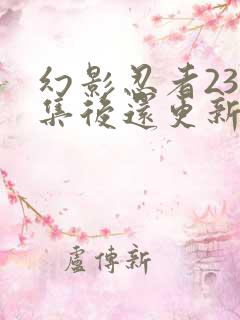 幻影忍者23
集後還更新
盧傳新